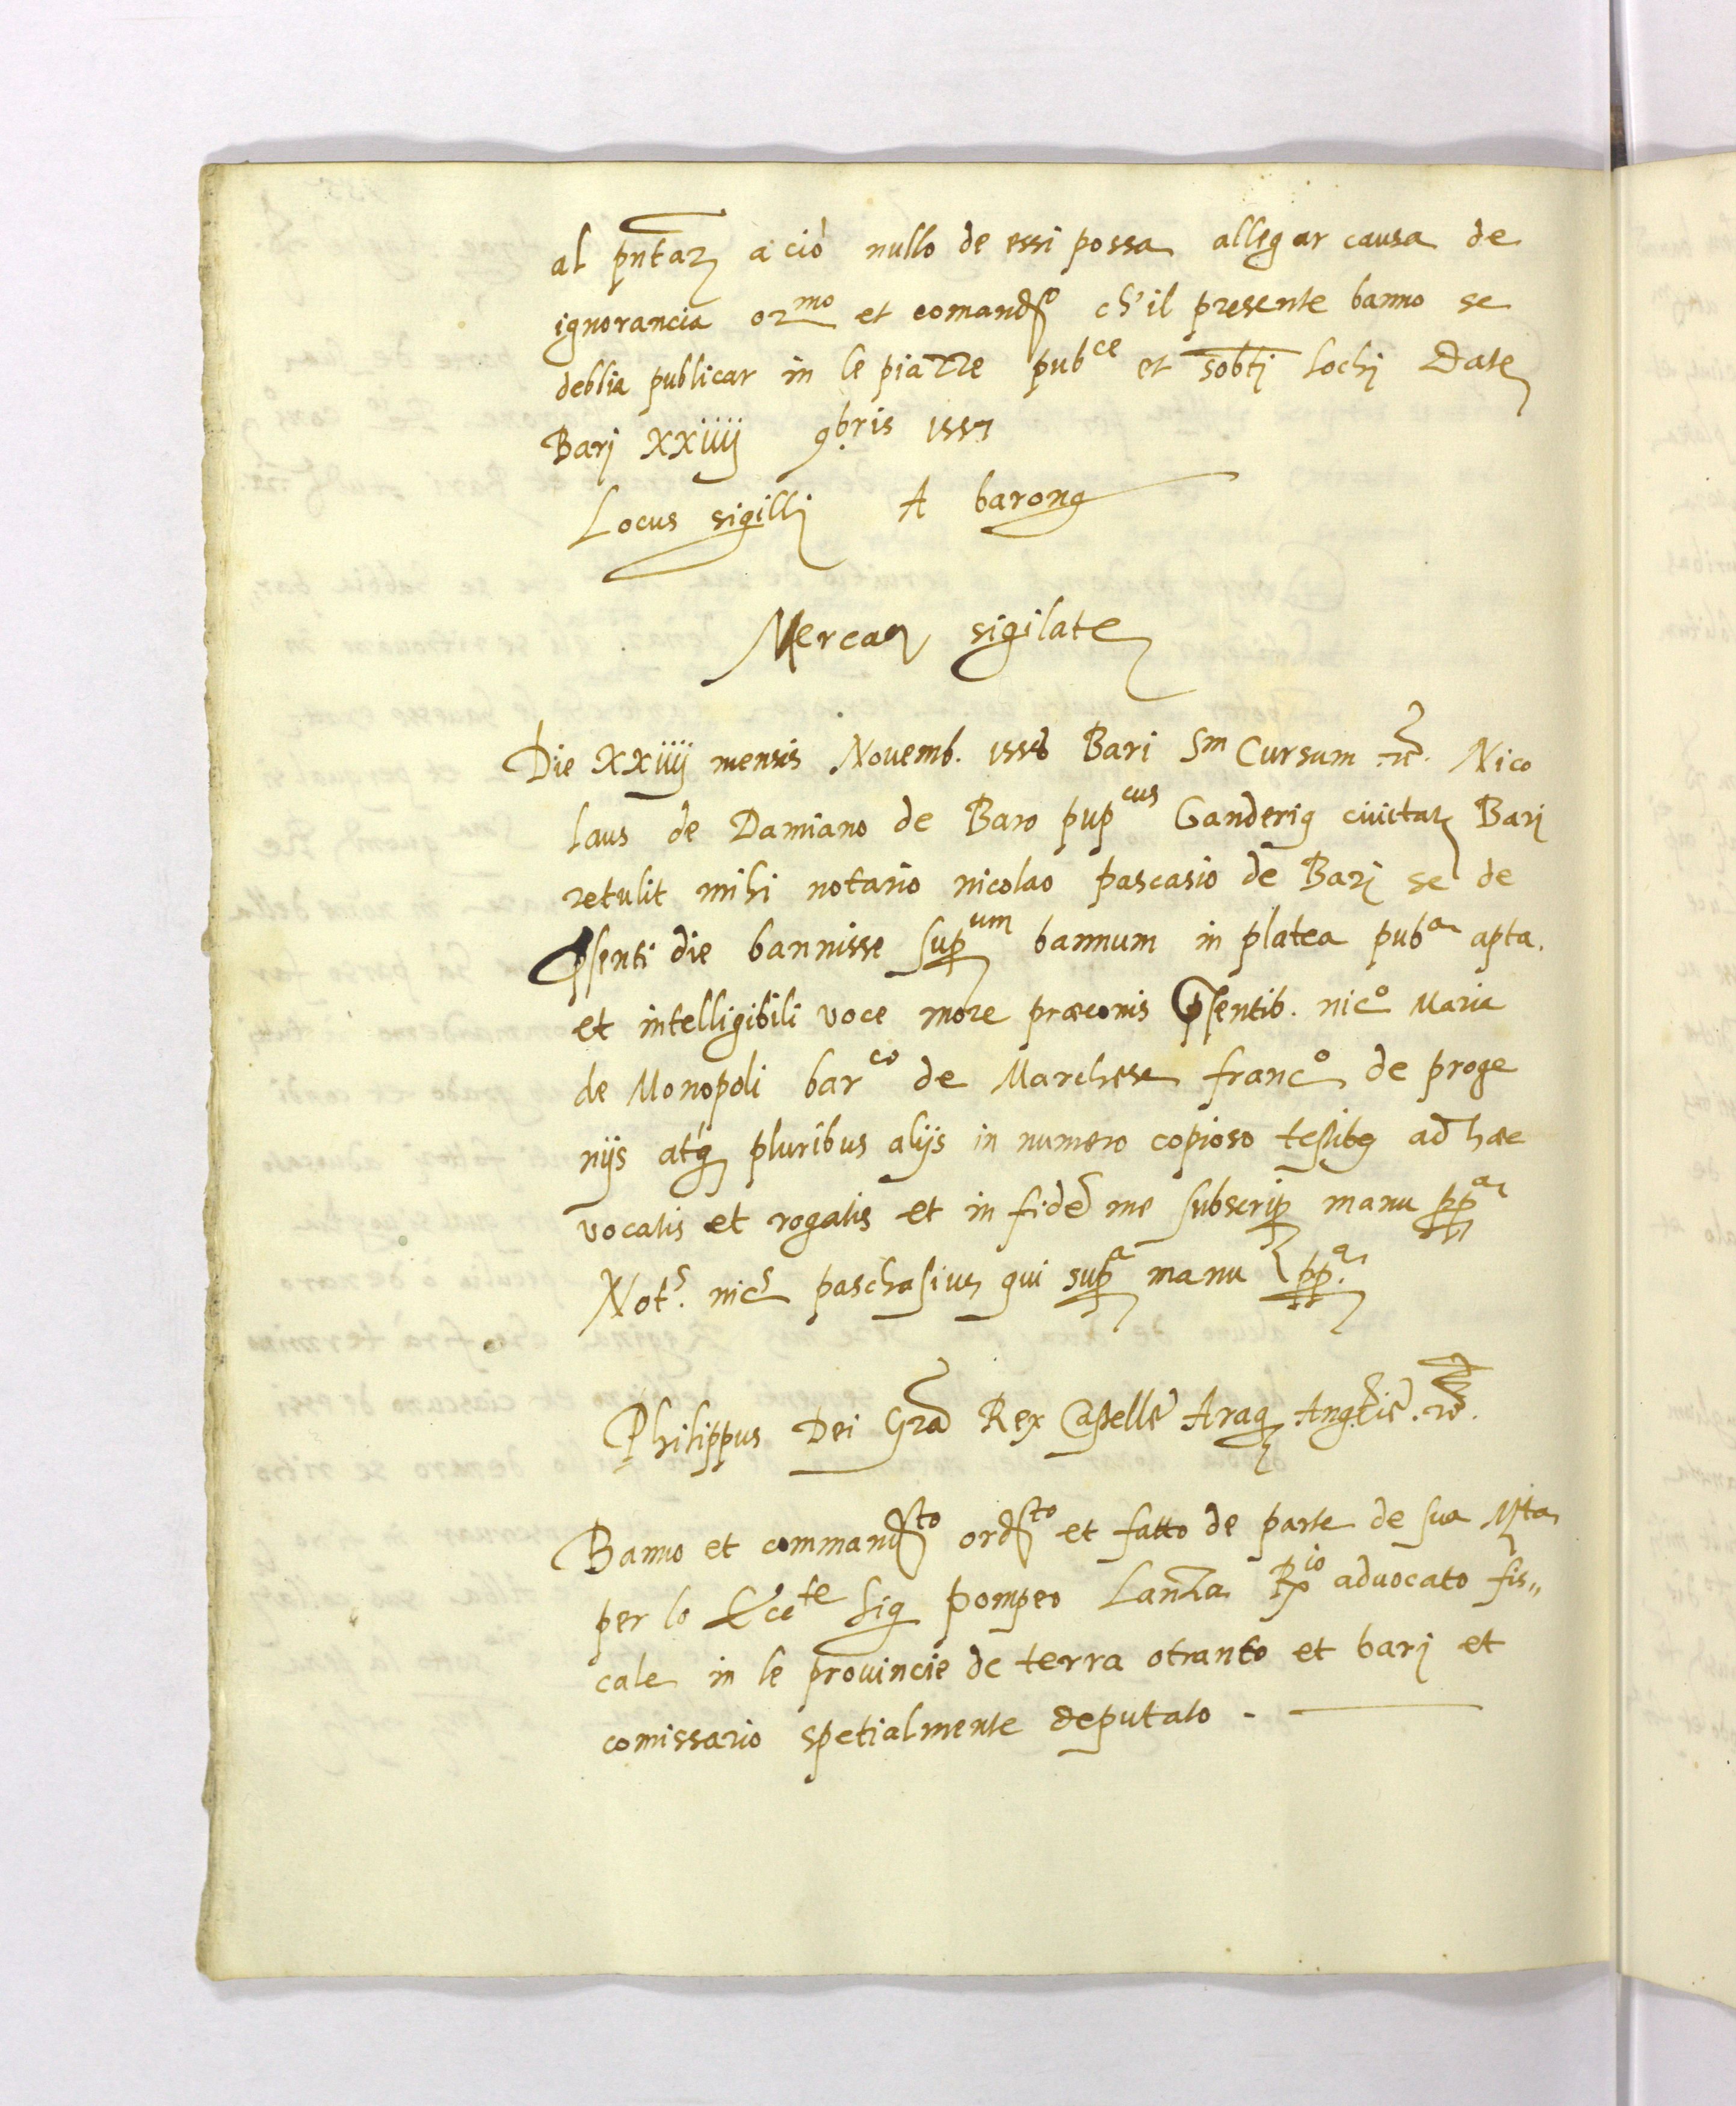 al pntar a ciò nullo de essi possa allegar causa de
ignorancia or.mo et comando ch'il presente banno se
debbia publicar in le piazze pub.ce et sobti lochi Date
Barj XXiiij 9bris 1557
Locus sigilli A barong
Mercar sigilate
Die XXiiij mensis Novemb. 1558 Bari Sm Cursum Nico
laus de Damiano de Baro pup.cus civitat Barj
retulit mihi notario nicolao pascasio de Barj se de
psenti die bannisse sup.um bannum in platea pub.a apta.
et intelligibili voce more præconis psentib. nic.o Maria
de Monopoli bar.co de Marchese franc.o de proge
nijs atq pluribus alijs in numero copioso testibg ad hæc
vocatis et rogatis et in fide me subscrip manu pp.a
Not.s nic.s paschasius qui sup.a manu pp.a
Philippus Dei Gra Rex Castelle Arag Anglie
Banno et command.to ord.to et fatto de parte de sua Mta
per lo Ecc.te sig pompeo Lanza R.io advocato fis„
cale in le provincie de terra otranto et barj et
comissario spetialmente deputato -